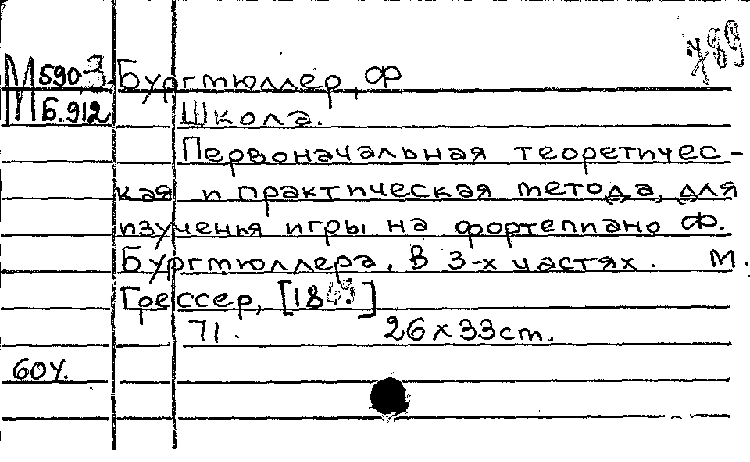 789
М 590.3 Бургмюллер, Ф
Б.912 Школа.
Первоначальная теоретичес-
кая и практическая метода, для
изученья игры на фортепиано Ф.
Бургмюллера. В 3-х частях. М.
Грессер,
71. 26 x 33 cm.
60У.